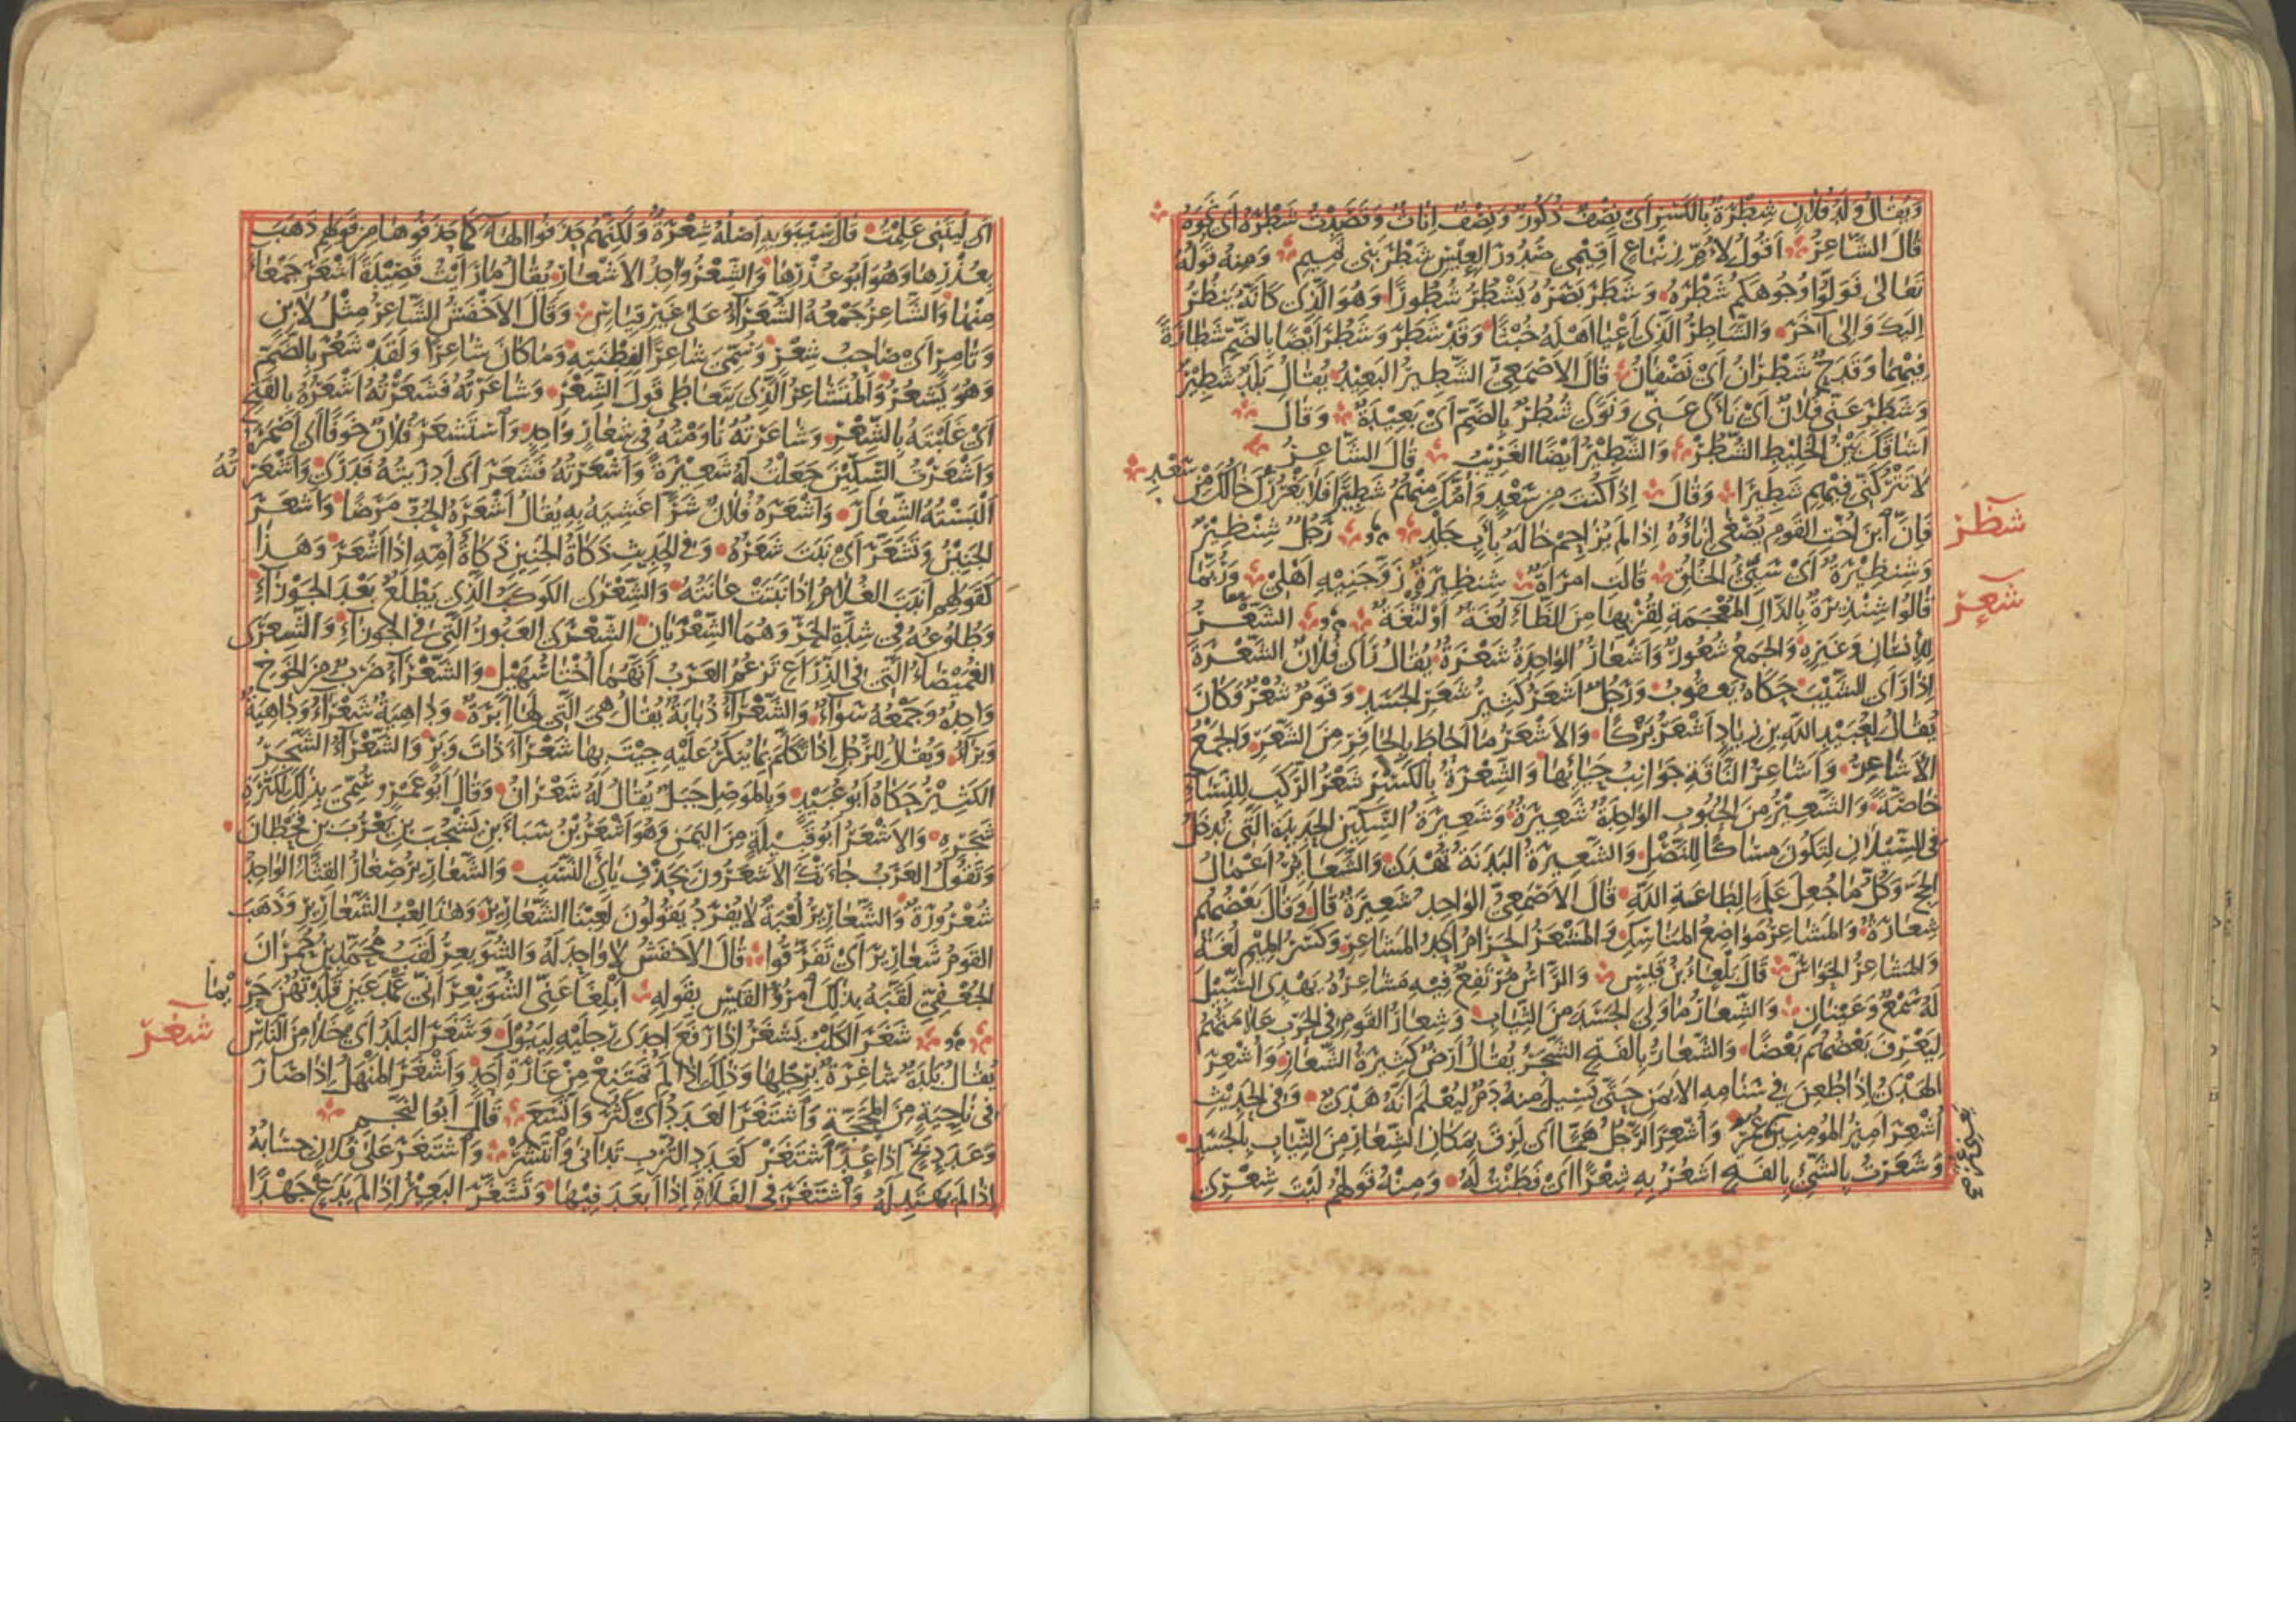 وَيُقَالُ وُلْدُ فُلَانٍ شِطْرَةٌ بِالْكَسْرِ أَيْ نِصْفٌ ذُكُورٌ وَنِصْفٌ إِنَاثٌ وَقَصَدْتُ شَطْرَهُ أَيْ نَحْوَهُ
قَالَ الشَّاعِرُ أَقُولُ لِأُمِّ زِنْبَاعٍ أَقِيمِي صُدُورَ الْعِيسِ شَطْرَ بَنِي تَمِيمِ وَمِنْهُ قَوْلُهُ
تَعَالَى فَوَلُّوا وُجُوهَكُمْ شَطْرَهُ وَشَطَرَ بَصَرُهُ يَشْطُرُ شُطُورًا وَهُوَ الَّذِي كَأَنَّهُ يَنْظُرُ
إِلَيْكَ وَإِلَى آخَرَ وَالشَّاطِرُ الَّذِي أَعْيَا أَهْلَهُ خُبْثًا وَقَدْ شَطَرَ وَشَطُرَ أَيْضًا بِالضَّمِّ شَطَارَةً
فِيهِمَا وَقَدَحٌ شَطْرَانُ أَيْ نَصْفَانُ قَالَ الْأَصْمَعِيُّ الشَّطِيرُ الْبَعِيدُ يُقَالُ بَلَدٌ شَطِيرٌ
وَشَطَرَ عَنِّي فُلَانٌ أَيْ نَأَى عَنِّي وَنَوًى شُطُرٌ بِالضَّمِّ أَيْ بَعِيدَةٌ وَقَالَ
أَشَاقَكَ بَيْنُ الْخَلِيطِ الشُّطُرْ وَالشَّطِيرُ أَيْضًا الْغَرِيبُ قَالَ الشَّاعِرُ
لَا تَتْرُكَنِّي فِيهِمِ شَطِيرًا وَقَالَ إِذَا كُنْتَ مِنْ سَعْدٍ وَأُمُّكَ مِنْهُمُ شَطِيرًا فَلَا يَغْرُرْكَ خَالُكَ مِنْ سَعْدِ
فَإِنَّ ابْنَ أُخْتِ الْقَوْمِ يُصْغَى إِنَاؤُهُ إِذَا لَمْ يُزَاحِمْ خَالَهُ بِأَبٍ جَلْدِ رَجُلٌ شِنْظِيرٌ
شظر
وَشِنْظِيرَةٌ أَيْ سَيِّئُ الْخُلُقِ قَالَتِ امْرَأَةٌ شِنْظِيرَةٌ زَوَّجَنِيهِ أَهْلِي وَرُبَّمَا
قَالُوا شِنْذِيرَةٌ بِالذَّالِ الْمُعْجَمَةِ لِقُرْبِهَا مِنَ الظَّاءِ لُغَةٌ أَوْ لُثْغَةٌ الشَّعْرُ
شعر
لِلْإِنْسَانِ وَغَيْرِهِ وَالْجَمْعُ شُعُورٌ وَأَشْعَارٌ الْوَاحِدَةُ شَعْرَةٌ يُقَالُ رَأَى فُلَانٌ الشَّعْرَةَ
إِذَا رَأَى الشَّيْبَ حَكَاهُ يَعْقُوبُ وَرَجُلٌ أَشْعَرُ كَثِيرُ شَعَرِ الْجَسَدِ وَقَوْمٌ شُعْرٌ وَكَانَ
يُقَالُ لِعُبَيْدِ اللَّهِ بْنِ زِيَادٍ أَشْعَرُ بَرْكًا وَالْأَشْعَرُ مَا أَحَاطَ بِالْحَافِرِ مِنَ الشَّعَرِ وَالْجَمْعُ
الْأَشَاعِرُ وَأَشَاعِرُ النَّاقَةِ جَوَانِبُ حَيَائِهَا وَالشِّعْرَةُ بِالْكَسْرِ شَعْرُ الرَّكَبِ لِلنِّسَاءِ
خَاصَّةً وَالشَّعِيرُ مِنَ الْحُبُوبِ الْوَاحِدَةُ شَعِيرَةٌ وَشَعِيرَةُ السِّكِّينِ الْحَدِيدَةُ الَّتِي تُدْخَلُ
فِي السِّيلَانِ لِتَكُونَ مِسَاكًا لِلنَّصْلِ وَالشَّعِيرَةُ الْبَدَنَةُ تُهْدَى وَالشَّعَائِرُ أَعْمَالُ
الْحَجِّ وَكُلُّ مَا جُعِلَ عَلَمًا لِطَاعَةِ اللَّهِ قَالَ الْأَصْمَعِيُّ الْوَاحِدُ شَعِيرَةٌ قَالَ وَقَالَ بَعْضُهُمْ
شِعَارَةٌ وَالْمَشَاعِرُ مَوَاضِعُ الْمَنَاسِكِ وَالْمَشْعَرُ الْحَرَامُ أَحَدُ الْمَشَاعِرِ وَكَسْرُ الْمِيمِ لُغَةٌ
وَالْمَشَاعِرُ الْحَوَاسُّ قَالَ بَلْعَاءُ بْنُ قَيْسٍ وَالرَّأْسُ مُرْتَفِعٌ فِيهِ مَشَاعِرُهُ يَهْدِي السَّبِيلَ
لَهُ سَمْعٌ وَعَيْنَانِ وَالشِّعَارُ مَا وَلِيَ الْجَسَدَ مِنَ الثِّيَابِ وَشِعَارُ الْقَوْمِ فِي الْحَرْبِ عَلَامَتُهُمْ
لِيَعْرِفَ بَعْضُهُمْ بَعْضًا وَالشَّعَارُ بِالْفَتْحِ الشَّجَرُ يُقَالُ أَرْضٌ كَثِيرَةُ الشَّعَارِ وَأَشْعَرَ
الْهَدْيَ إِذَا طَعَنَ فِي سَنَامِهِ الْأَيْمَنِ حَتَّى يَسِيلَ مِنْهُ دَمٌ لِيُعْلَمَ أَنَّهُ هَدْيٌ وَفِي الْحَدِيثِ
أُشْعِرَ أَمِيرُ الْمُؤْمِنِينَ عُمَرُ وَأُشْعِرَ الرَّجُلُ هَمًّا أَيْ لَزِقَ بِمَكَانِ الشِّعَارِ مِنَ الثِّيَابِ بِالْجَسَدِ
وَشَعَرْتُ بِالشَّيْءِ بِالْفَتْحِ أَشْعُرُ بِهِ شِعْرًا أَيْ فَطَنْتُ لَهُ وَمِنْهُ قَوْلُهُمْ لَيْتَ شِعْرِي
أَيْ لَيْتَنِي عَلِمْتُ قَالَ سِيبَوَيْهِ أَصْلُهُ شِعْرَةٌ وَلَكِنَّهُمْ حَذَفُوا الْهَاءَ كَمَا حَذَفُوهَا مِنْ قَوْلِهِمْ ذَهَبَ
بِعُذْرِهَا وَهُوَ أَبُو عُذْرِهَا وَالشِّعْرُ وَاحِدُ الْأَشْعَارِ يُقَالُ مَا رَأَيْتُ قَصِيدَةً أَشْعَرَ جَمْعًا
مِنْهَا وَالشَّاعِرُ جَمْعُهُ الشُّعَرَاءُ عَلَى غَيْرِ قِيَاسٍ وَقَالَ الْأَخْفَشُ الشَّاعِرُ مِثْلُ لَابِنٍ
وَتَامِرٍ أَيْ صَاحِبُ شِعْرٍ وَسُمِّيَ شَاعِرًا لِفِطْنَتِهِ وَمَا كَانَ شَاعِرًا وَلَقَدْ شَعُرَ بِالضَّمِّ
وَهُوَ يَشْعُرُ وَالْمُتَشَاعِرُ الَّذِي يَتَعَاطَى قَوْلَ الشِّعْرِ وَشَاعَرْتُهُ فَشَعَرْتُهُ أَشْعَرُهُ بِالْفَتْحِ
أَيْ غَلَبْتُهُ بِالشِّعْرِ وَشَاعَرْتُهُ نَاوَمْتُهُ فِي شِعَارٍ وَاحِدٍ وَاسْتَشْعَرَ فُلَانٌ خَوْفًا أَيْ أَضْمَرَهُ
وَأَشْعَرْتُ السِّكِّينَ جَعَلْتُ لَهُ شَعِيرَةً وَأَشْعَرْتُهُ فَشَعَرَ أَيْ أَدْرَيْتُهُ فَدَرَى وَأَشْعَرْتُهُ
أَلْبَسْتُهُ الشِّعَارَ وَأَشْعَرَهُ فُلَانٌ شَرًّا غَشِيَهُ بِهِ يُقَالُ أَشْعَرَهُ الْحُبُّ مَرَضًا وَأَشْعَرَ
الْجَنِينُ وَتَشَعَّرَ أَيْ نَبَتَ شَعَرُهُ وَفِي الْحَدِيثِ ذَكَاةُ الْجَنِينِ ذَكَاةُ أُمِّهِ إِذَا أَشْعَرَ وَهَذَا
كَقَوْلِهِمْ أَنْبَتَ الْغُلَامُ إِذَا نَبَتَتْ عَانَتُهُ وَالشِّعْرَى الْكَوْكَبُ الَّذِي يَطْلُعُ بَعْدَ الْجَوْزَاءِ
وَطُلُوعُهُ فِي شِدَّةِ الْحَرِّ وَهُمَا الشِّعْرَيَانِ الشِّعْرَى الْعَبُورُ الَّتِي فِي الْجَوْزَاءِ وَالشِّعْرَى
الْغُمَيْصَاءُ الَّتِي فِي الذِّرَاعِ تَزْعُمُ الْعَرَبُ أَنَّهُمَا أُخْتَا سُهَيْلٍ وَالشَّعْرَاءُ ضَرْبٌ مِنَ الْخَوْخِ
وَاحِدُهُ وَجَمْعُهُ سَوَاءٌ وَالشَّعْرَاءُ ذُبَابَةٌ يُقَالُ هِيَ الَّتِي لَهَا إِبْرَةٌ وَدَاهِيَةٌ شَعْرَاءُ وَدَاهِيَةٌ
وَبْرَاءُ وَيُقَالُ لِلرَّجُلِ إِذَا تَكَلَّمَ بِمَا يُنْكَرُ عَلَيْهِ جِئْتَ بِهَا شَعْرَاءَ ذَاتَ وَبَرٍ وَالشَّعْرَاءُ الشَّجَرُ
الْكَثِيرُ حَكَاهُ أَبُو عُبَيْدٍ وَبِالْمَوْصِلِ جَبَلٌ يُقَالُ لَهُ شَعْرَانُ وَقَالَ أَبُو عَمْرٍو سُمِّيَ بِذَلِكَ لِكَثْرَةِ
شَجَرِهِ وَالْأَشْعَرُ أَبُو قَبِيلَةٍ مِنَ الْيَمَنِ وَهُوَ أَشْعَرُ بْنُ سَبَاءَ بْنِ يَشْجُبَ بْنِ يَعْرُبَ بْنِ قَحْطَانَ
وَتَقُولُ الْعَرَبُ جَاءَتْكَ الْأَشْعَرُونَ بِحَذْفِ يَائَيِ النَّسَبِ وَالشَّعَارِيرُ صِغَارُ الْقِثَّاءِ الْوَاحِدُ
شُعْرُورَةٌ وَالشَّعَارِيرُ لُعْبَةٌ لَا يُفْرَدُ يَقُولُونَ لَعِبْنَا الشَّعَارِيرَ وَهَذَا لَعِبُ الشَّعَارِيرِ وَذَهَبَ
الْقَوْمُ شَعَارِيرَ أَيْ تَفَرَّقُوا قَالَ الْأَخْفَشُ لَا وَاحِدَ لَهُ وَالشُّوَيْعِرُ لَقَبُ مُحَمَّدِ بْنِ حُمْرَانَ
الْجُعْفِيِّ لَقَّبَهُ بِذَلِكَ امْرُؤُ الْقَيْسِ بِقَوْلِهِ أَبْلِغَا عَنِّي الشُّوَيْعِرَ أَنِّي عَمْدَ عَيْنٍ قَلَّدْتُهُنَّ حَرِيمَا
شَغَرَ الْكَلْبُ يَشْغَرُ إِذَا رَفَعَ إِحْدَى رِجْلَيْهِ لِيَبُولَ وَشَغَرَ الْبَلَدُ أَيْ خَلَا مِنَ النَّاسِ
شغر
يُقَالُ بَلْدَةٌ شَاغِرَةٌ بِرِجْلِهَا وَذَلِكَ إِذَا لَمْ تَمْتَنِعْ مِنْ غَارَةِ أَحَدٍ وَأَشْغَرَ الْمَنْهَلُ إِذَا صَارَ
فِي نَاحِيَةٍ مِنَ الْمَحَجَّةِ وَاشْتَغَرَ الْعَدَدُ أَيْ كَثُرَ وَاتَّسَعَ قَالَ أَبُو النَّجْمِ
وَعَدَدٍ بَخٍّ إِذَا عُدَّ اشْتَغَرْ كَعَدَدِ التُّرْبِ تَدَانَى وَانْتَشَرْ وَاشْتَغَرَ عَلَى فُلَانٍ حِسَابُهُ
إِذَا لَمْ يَهْتَدِ لَهُ وَاشْتَغَرَ فِي الْفَلَاةِ إِذَا أَبْعَدَ فِيهَا وَتَشَغَّرَ الْبَعِيرُ إِذَا لَمْ يَدَعْ جَهْدًا